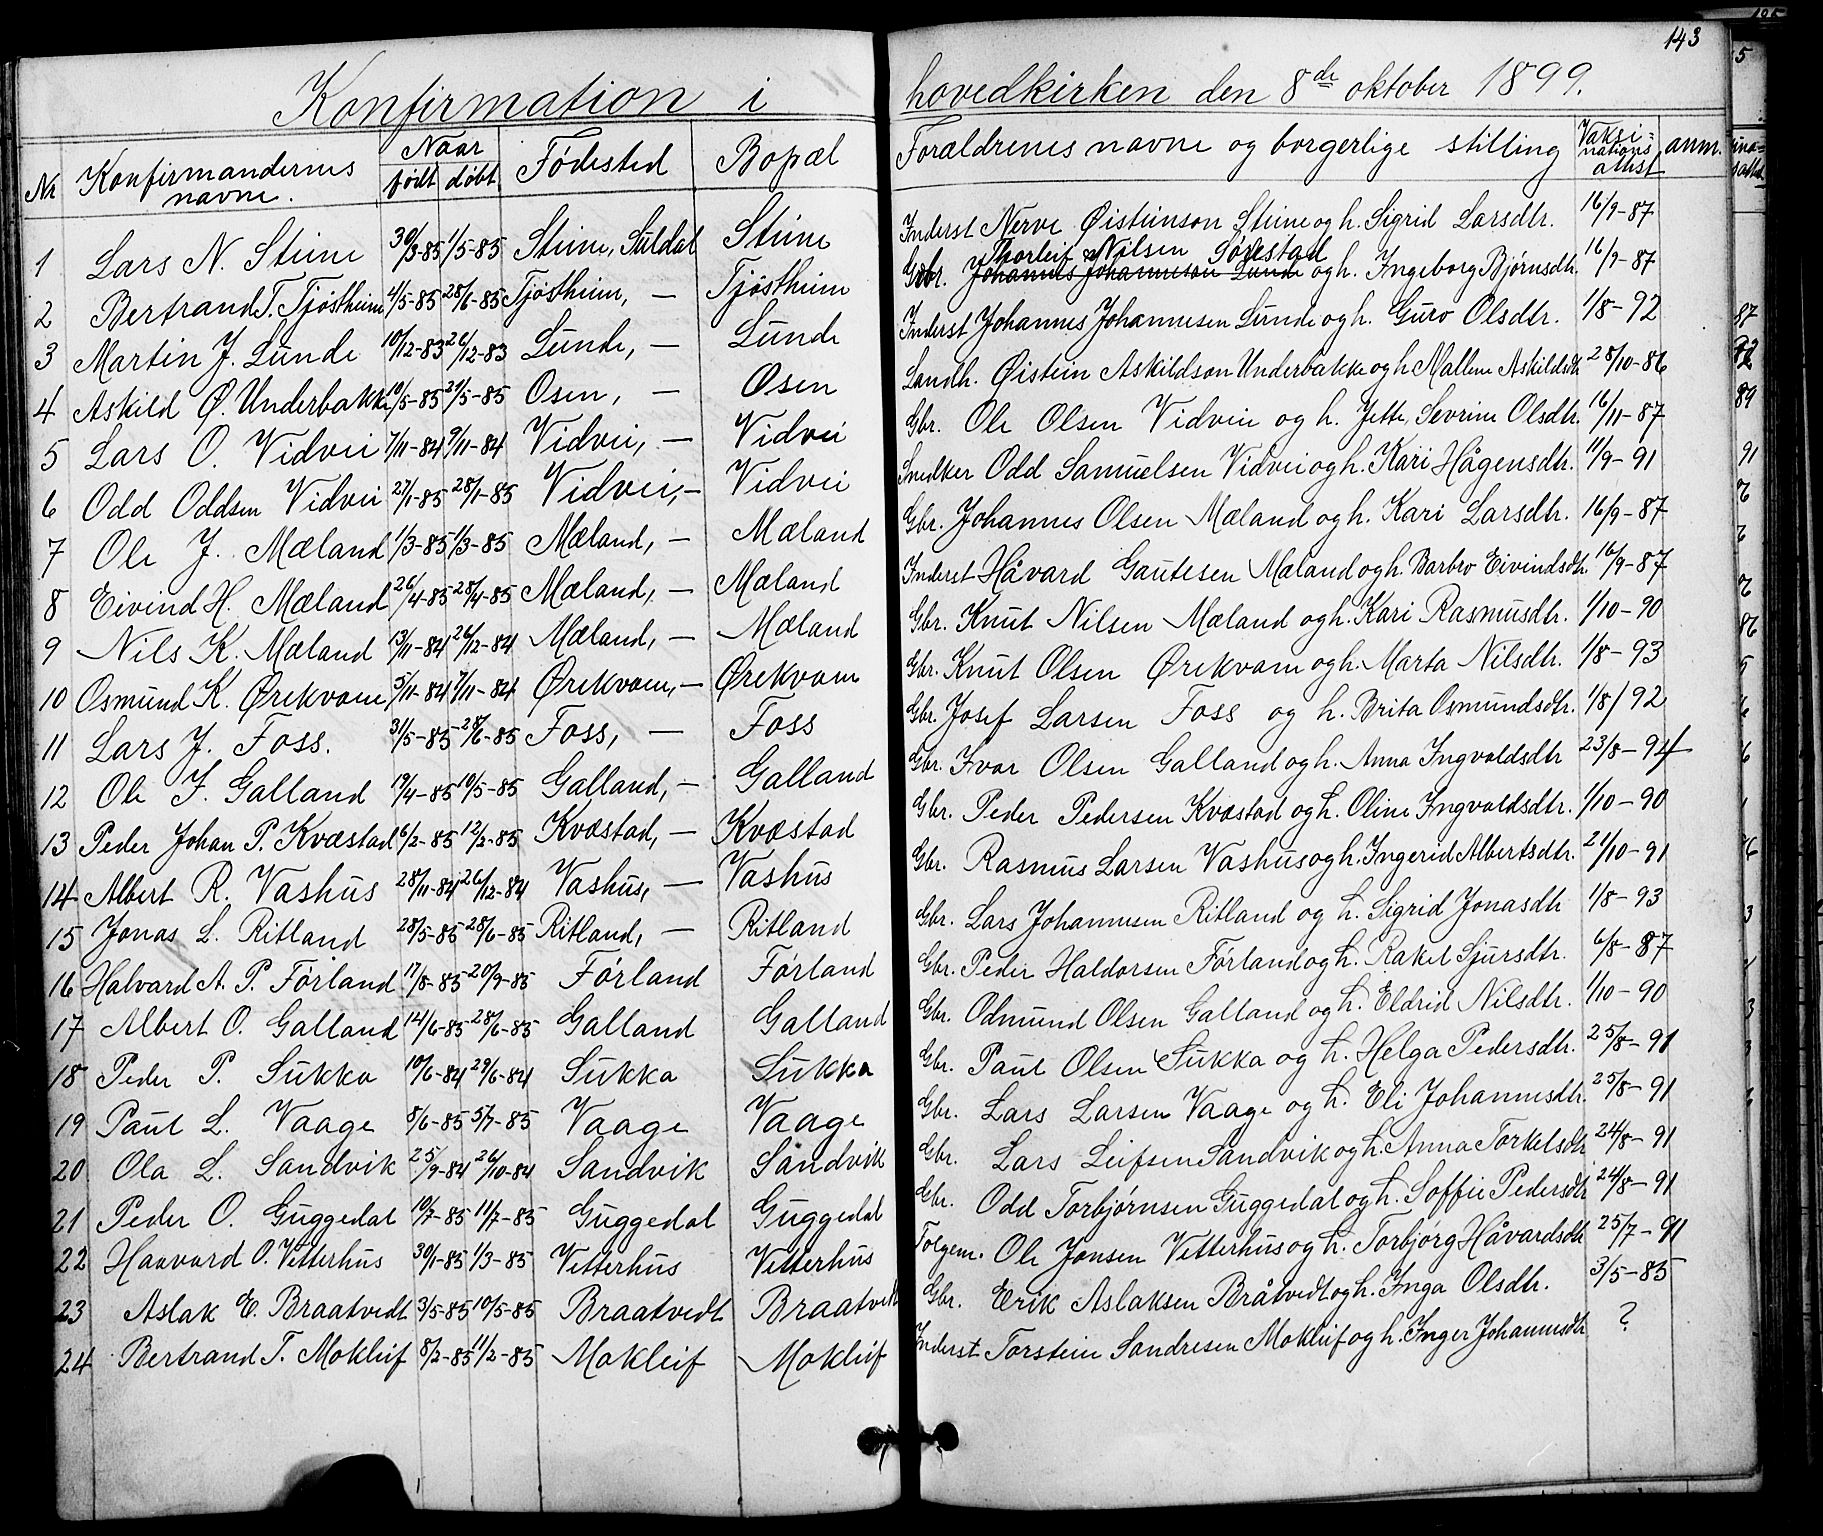 143
Konfirmation i hovedkirken den 8de oktober 1899.
Nr. Konfirmandernes navne. Naar født døbt Fødested Bopæl Forældrenes navne og borgerlige stilling Vaksi=nations attest anm.
1 Lars N. Steine 30/3-85 1/5-85 Steine, Suldal Steine Inderst Nerve Øisteinson Steine og h. Sigrid Larsdtr. 16/9-87
Thorleif Nilsen Sørestad
2 Bertrand T. Tjøstheim 4/5-85 28/6-85 Tjøstheim, — Tjøstheim Gbr. Johannes Johannesen Lunde og h. Ingeborg Bjørnsdtr. 16/9-87
3 Martin J. Lunde 10/12-83 26/12-83 Lunde, — Lunde Inderst Johannes Johannesen Lunde og h. Guro Olsdtr. 1/8-92
4 Askild Ø. Underbakke 10/5-85 21/5-85 Osen, — Osen Landh. Øistein Askildson Underbakke og h. Mallene Askildsdtr. 28/10-86
5 Lars O. Vidvei 7/11-84 9/11-84 Vidvei, — Vidvei Gbr. Ole Olsen Vidvei og h. Jette Sevrine Olsdtr. 16/11-87
6 Odd Oddsen Vidvei 27/1-85 28/1-85 Vidvei, — Vidvei Snedker Odd Samuelsen Vidvei og h. Kari Hågensdtr. 11/9-91
7 Ole J. Mæland 1/3-85 1/3-85 Mæland, — Mæland Gbr. Johannes Olsen Mæland og h. Kari Larsdtr. 16/9-87
8 Eivind H. Mæland 26/4-85 28/4-85 Mæland, — Mæland Inderst Håvard Gautesen Mæland og h. Barbro Eivindsdtr. 16/9-87
9 Nils K. Mæland 13/11-84 26/12-84 Mæland, — Mæland Gbr. Knut Nilsen Mæland og h. Kari Rasmusdtr. 1/10-90
10 Osmund K. Ørekvam 5/11-84 7/11-84 Ørekvam, — Ørekvam Gbr. Knut Olsen Ørekvam og h. Marta Nilsdtr. 1/8-93
11 Lars J. Foss. 31/5-85 28/6-85 Foss, — Foss Gbr. Josef Larsen Foss og h. Brita Osmundsdtr. 1/8/92
12 Ole I. Galland 19/4-85 10/5-85 Galland, — Galland Gbr. Ivar Olsen Galland og h. Anna Ingvaldsdtr 23/8-94
13 Peder Johan P. Kvæstad 6/2-85 12/2-85 Kvæstad, — Kvæstad Gbr. Peder Pedersen Kvæstad og h. Oline Ingvaldsdtr. 1/10-90
14 Albert R. Vashus 28/11-84 26/12-84 Vashus, — Vashus Gbr. Rasmus Larsen Vashus og h. Ingerid Albertsdtr. 21/10-91
15 Jonas L. Ritland 28/5-85 28/6-85 Ritland, — Ritland Gbr. Lars Johannesen Ritland og h. Sigrid Jonasdtr 1/8-93
16 Halvard A. P. Førland 17/8-85 20/9-85 Førland Førland Gbr. Peder Haldorsen Førland og h. Rakel Sjursdtr. 6/8-87
17 Albert O. Galland 14/6-85 28/6-85 Galland Galland Gbr. Odmund Olsen Galland og h. Eldrid Nilsdtr. 1/10-90
18 Peder P. Sukka 10/6-84 29/6-84 Sukka Sukka Gbr. Paul Olsen Sukka og h. Helga Pedersdtr. 25/8-91
19 Paul L. Vaage 8/6-85 5/7-85 Vaage Vaage Gbr. Lars Larsen Vaage og h. Eli Johannesdtr. 25/8-91
20 Ola L. Sandvik 25/9-84 26/10-84 Sandvik Sandvik Gbr. Lars Leifsen Sandvik og h. Anna Torkelsdtr 24/8-91
21 Peder O. Guggedal 10/7-85 11/7-85 Guggedal Guggedal Gbr. Odd Torbjørnsen Guggedal og h. Soffie Pedersdtr 24/8-91
22 Haavard O. Vetterhus 30/1-85 1/3-85 Vetterhus Vetterhus Følgem. Ole Jonsen Vetterhus og h. Torbjørg Håvardsdtr 25/7-91
23 Aslak E. Braatvedt 3/5-85 10/5-85 Braatvedt Braatvedt Gbr. Erik Aslaksen Bråtvedt og h. Inga Olsdtr. 3/5-85
24 Bertrand T. Mokleif 8/2-85 11/2-85 Mokleif Mokleif Inderst Torstein Sandresen Mokleif og h. Inger Johannesdtr ?